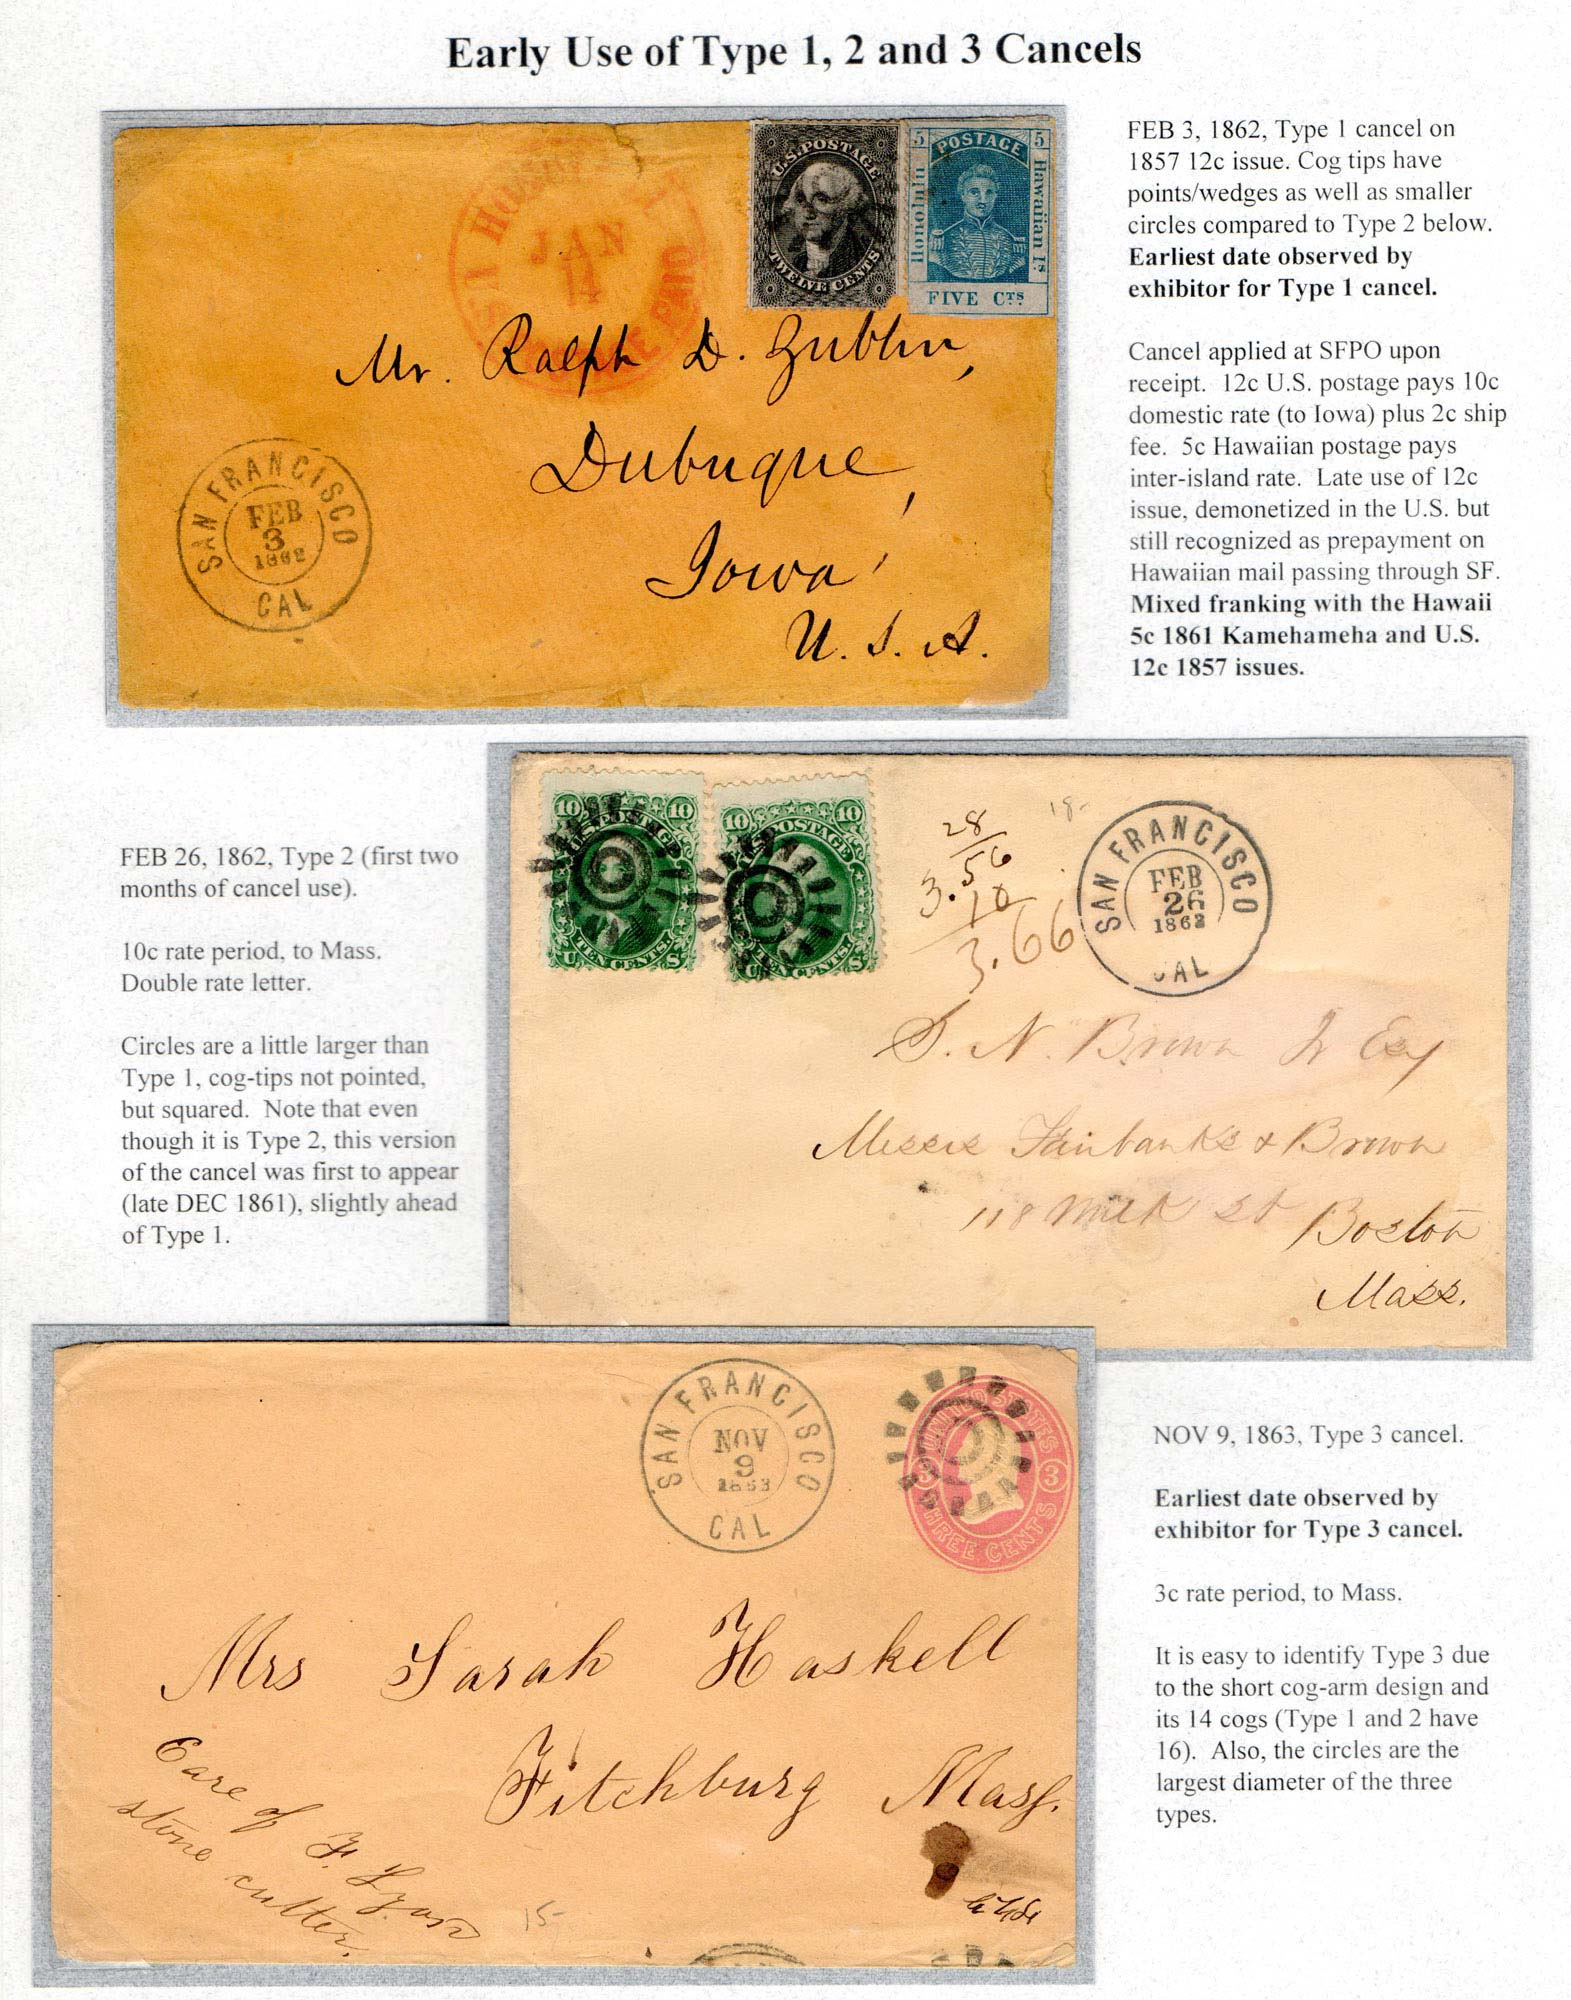 Early Use of Type 1, 2 and 3 Cancels
FEB 3, 1862, Type 1 cancel on
1857 12c issue. Cog tips have
points/wedges as well as smaller
circles compared to Type 2 below.
Earliest date observed by
exhibitor for Type 1 cancel.
Cancel applied at SFPO upon
receipt. 12c U.S. postage pays 10c
domestic rate (to Iowa) plus 2c ship
fee. 5c Hawaiian postage pays
inter-island rate. Late use of 12c
issue, demonetized in the U.S. but
still recognized as prepayment on
Hawaiian mail passing through SF.
Mixed franking with the Hawaii
5c 1861 Kamehameha and U.S.
12c 1857 issues.
U.S. POSTAGE
TWELVE CENTS
5 POSTAGE 5
Honolulu
Hawaiian Is
FIVE Cts.
JAN
14
PAID
Mr. Ralph D. Zublin,
Dubuque,
Iowa
U. S. A.
SAN FRANCISCO
FEB
3
1862
CAL
FEB 26, 1862, Type 2 (first two
months of cancel use).
10c rate period, to Mass.
Double rate letter.
Circles are a little larger than
Type 1, cog-tips not pointed,
but squared. Note that even
though it is Type 2, this version
of the cancel was first to appear
(late DEC 1861), slightly ahead
of Type 1.
10 10
U.S. POSTAGE
U TEN CENTS. S
10 10
U.S. POSTAGE
U TEN CENTS. S
28
3.56
10
3.66
18-
SAN FRANCISCO
FEB
26
1862
CAL
S. N. Brown Jr Esq
Messrs Fairbanks & Brown
118 Milk St
Boston
Mass.
SAN FRANCISCO
NOV
9
1863
CAL
UNITED STATES
3 3
THREE CENTS
Mrs Sarah Haskell
Fitchburg Mass.
Care of F. Lyon
stone cutter.
15-
NOV 9, 1863, Type 3 cancel.
Earliest date observed by
exhibitor for Type 3 cancel.
3c rate period, to Mass.
It is easy to identify Type 3 due
to the short cog-arm design and
its 14 cogs (Type 1 and 2 have
16). Also, the circles are the
largest diameter of the three
types.